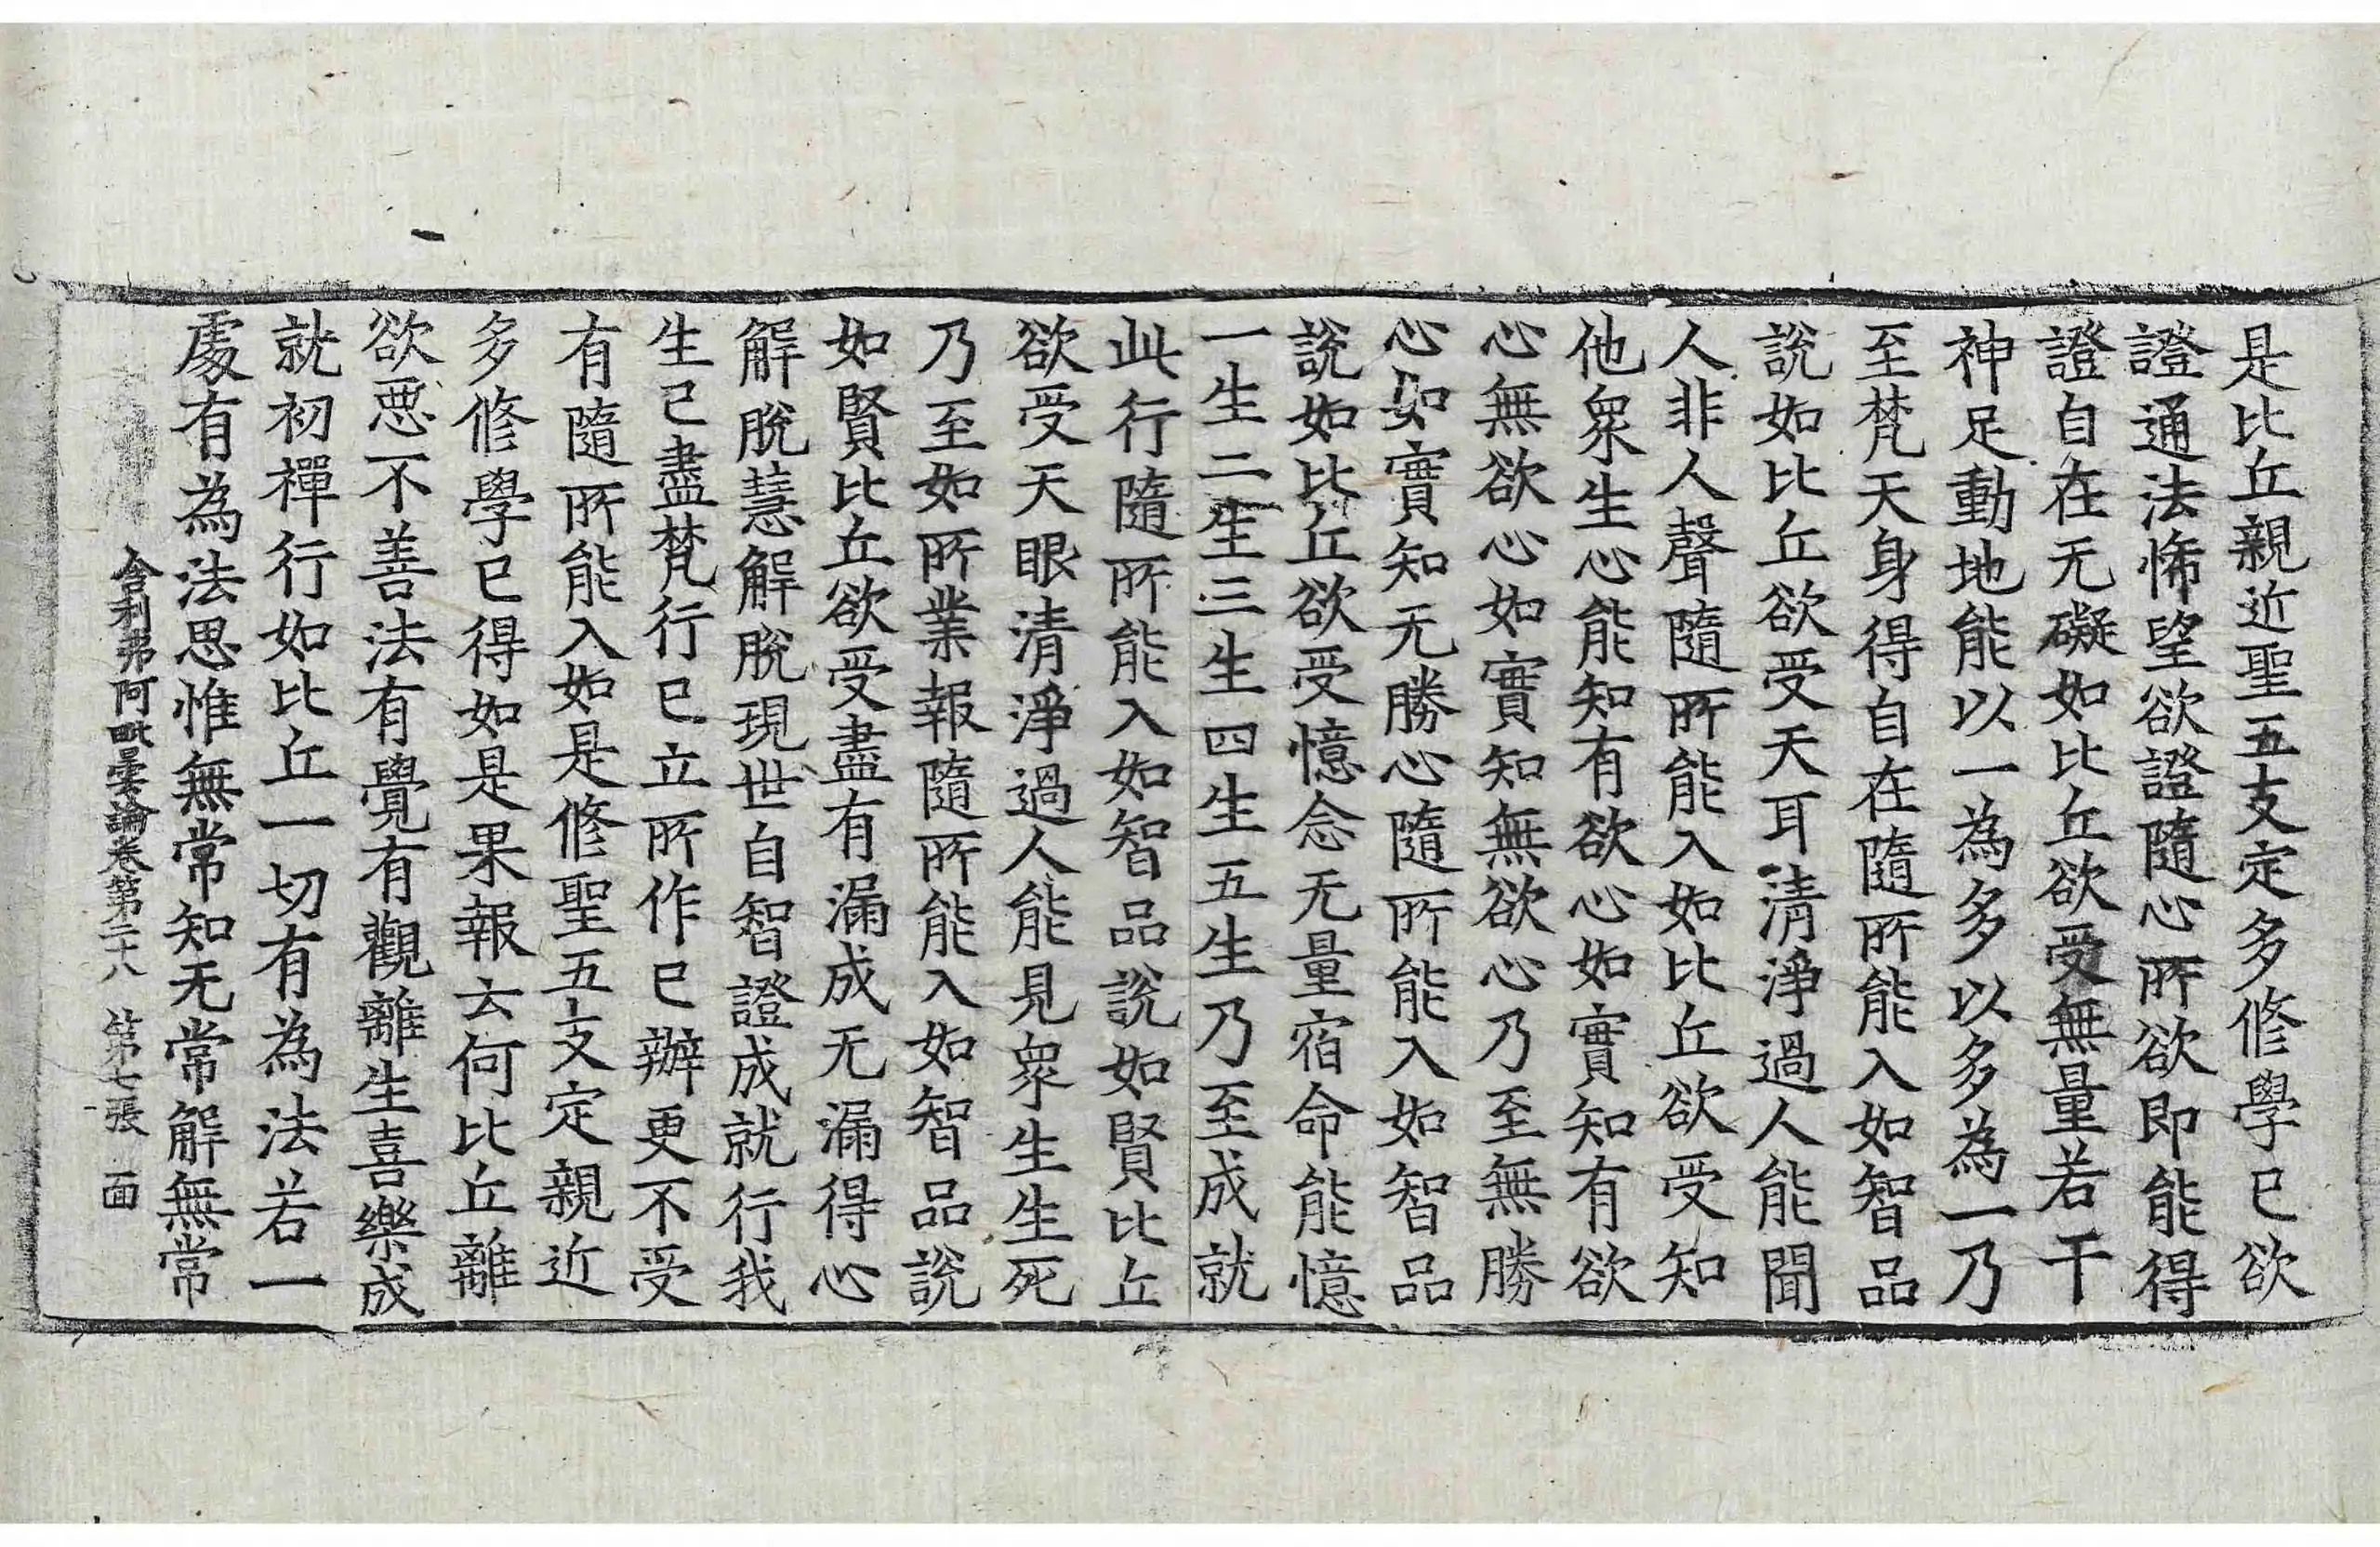 是比丘親近聖五支定多修學已欲
證通法悕望欲證隨心所欲即能得
證自在无礙如比丘欲受無量若干
神足動地能以一為多以多為一乃
至梵天身得自在隨所能入如智品
說如比丘欲受天耳清淨過人能聞
人非人聲隨所能入如比丘欲受知
他眾生心能知有欲心如實知有欲
心無欲心如實知無欲心乃至無勝
心如實知无勝心隨所能入如智品
說如比丘欲受憶念无量宿命能憶
一生二生三生四生五生乃至成就
此行隨所能入如智品說如賢比丘
欲受天眼清淨過人能見眾生生死
乃至如所業報隨所能入如智品說
如賢比丘欲受盡有漏成无漏得心
解脫慧解脫現世自智證成就行我
生已盡梵行已立所作已辦更不受
有隨所能入如是修聖五支定親近
多修學已得如是果報云何比丘離
欲惡不善法有覺有觀離生喜樂成
就初禪行如比丘一切有為法若一
處有為法思惟無常知无常解無常
舍利弗阿毗曇論卷第二十八 第七張 面